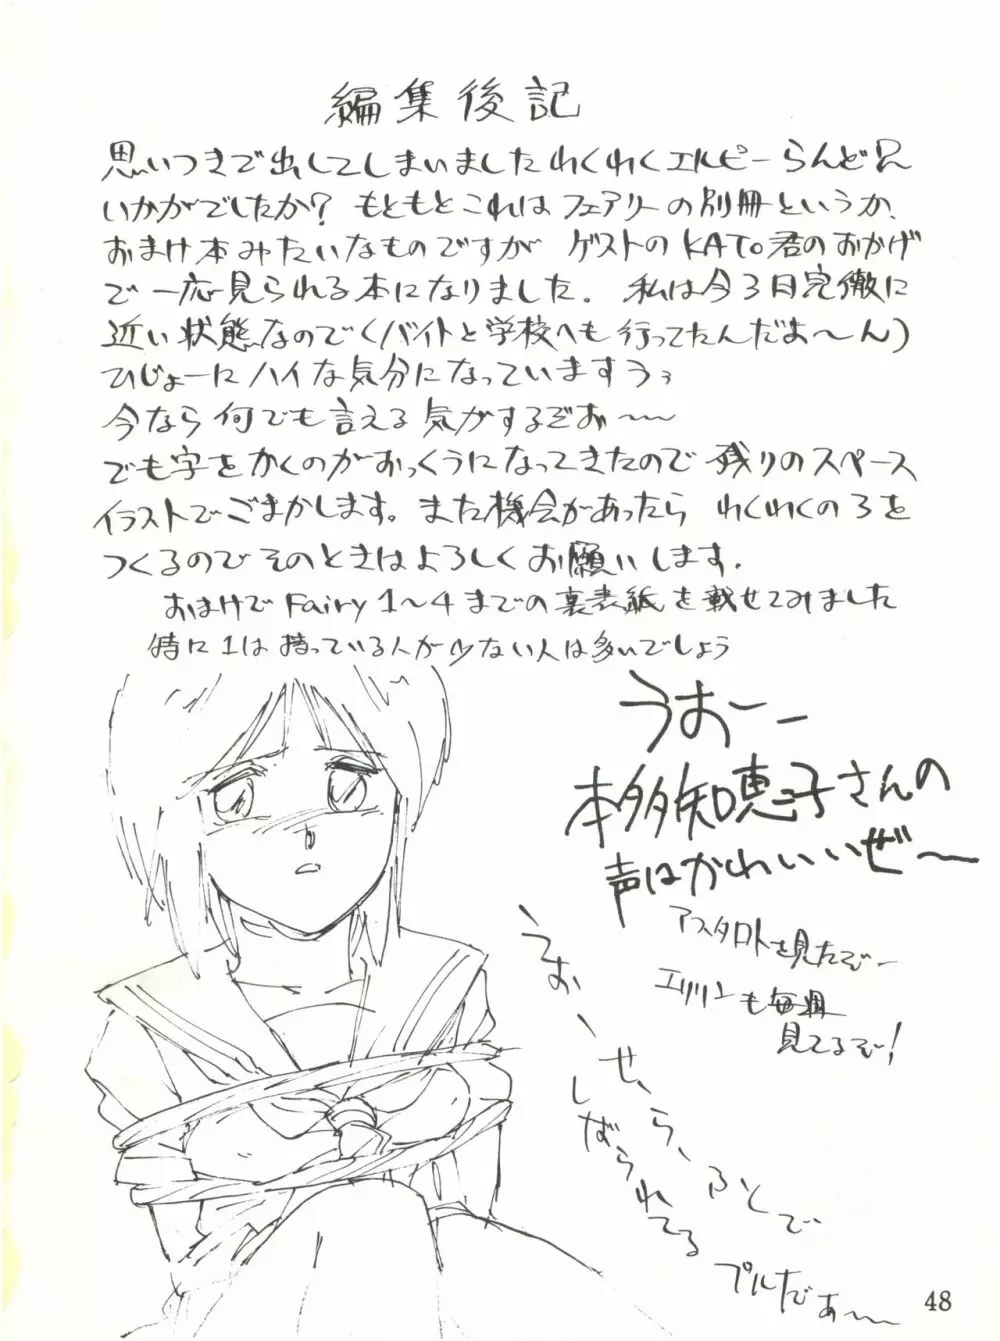 編集後記
思いつきで出してしまいましたわくわくエルピーらんど
いかがでしたか? もともとこれはフェアリーの別冊というか、
おまけ本みたいなものですが ゲストのKATo君のおかげ
で一応見られる本になりました. 私は今3日完徹に
近い状態なので(バイトと学校へも行ってたんだよ〜ん)
ひじょーにハイな気分になっていますうぅ
今なら何でも言える気がするぞお〜〜
でも字をかくのがおっくうになってきたので 残りのスペース
イラストでごまかします。また機会があったら わくわくの3を
つくるので そのときはよろしくお願いします.
おまけで Fairy 1〜4までの裏表紙を載せてみました
特に1は持っている人が少ない人は多いでしょう
うおーー
本多知恵子さんの
声はかわいいぜ〜
アスタロトを見たぞー
エリリンも毎週
見てるぞー!
うおーー せ、ら、ふくで
しばられてる
プルだあ〜〜
48